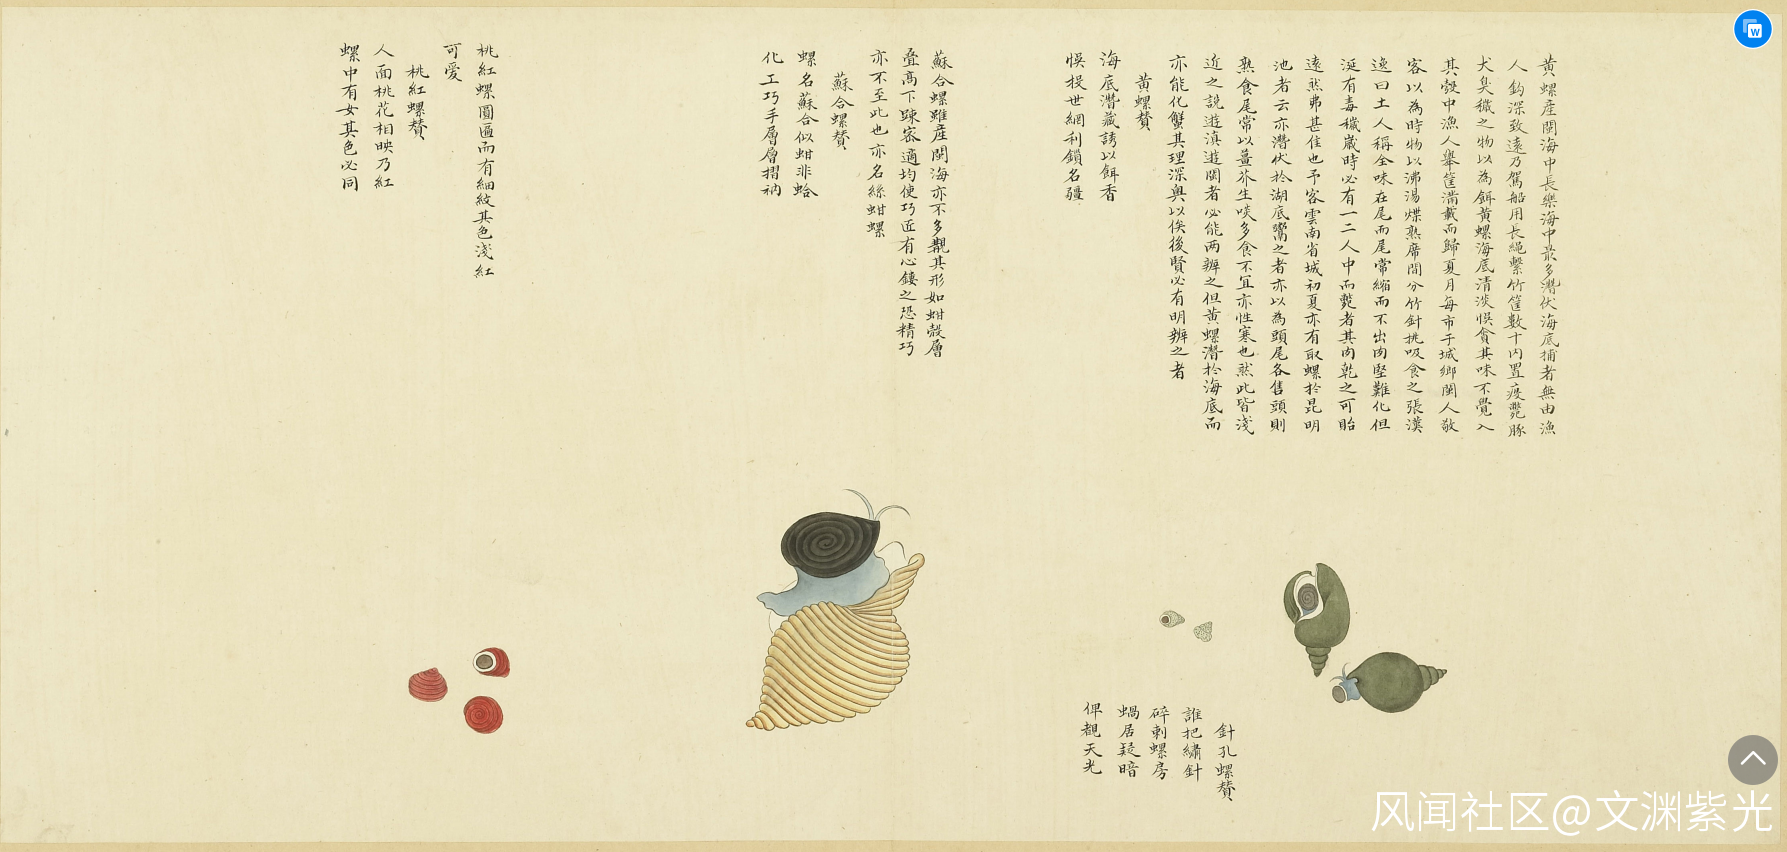 黃螺產閩海中長樂海中最多潛伏海底捕者無由漁
人鈎深致遠乃駕船用長繩繫竹筐數十內置瘦斃豚
犬臭穢之物以為餌黃螺海底清淡悞貪其味不覺入
其殼中漁人舉筐滿載而歸夏月每市于城鄉閩人敬
客以為時物以沸湯煠熟席間分竹針挑吸食之張漢
逸曰土人稱全味在尾而尾常縮而不出肉堅難化但
涎有毒穢歲時必有一二人中而斃者其肉乾之可貽
遠然弗甚佳也予客雲南省城初夏亦有取螺於昆明
池者云亦潛伏於湖底鬻之者亦以為頭尾各售頭則
熟食尾常以薑芥生啖多食不宜亦性寒也然此皆淺
近之說遊滇遊閩者必能兩辨之但黃螺潛於海底而
亦能化蟹其理深奧以俟後賢必有明辨之者
黃螺賛
海底潛藏誘以餌香
悞投世網利鎖名韁
針孔螺賛
誰把繡針
碎刺螺房
蝸居疑暗
俾覩天光
蘇合螺雖產閩海亦不多覯其形如蚶殼層
叠高下踈密適均使巧匠有心鏤之恐精巧
亦不至此也亦名絲蚶螺
蘇合螺賛
螺名蘇合似蚶非蛤
化工巧手層層摺衲
桃紅螺圓匾而有細紋其色淺紅
可愛
桃紅螺賛
人面桃花相映乃紅
螺中有女其色必同
风闻社区@文渊紫光